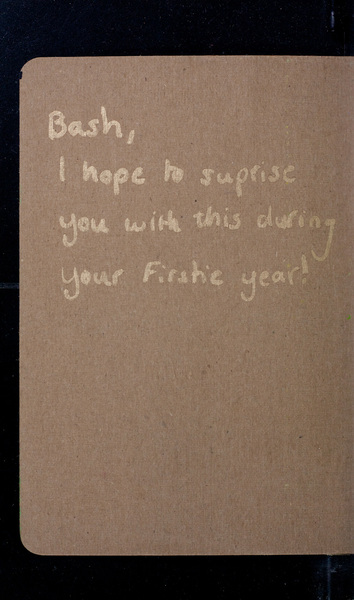 Bash,
I hope to suprise
you with this during
your Firstie year!